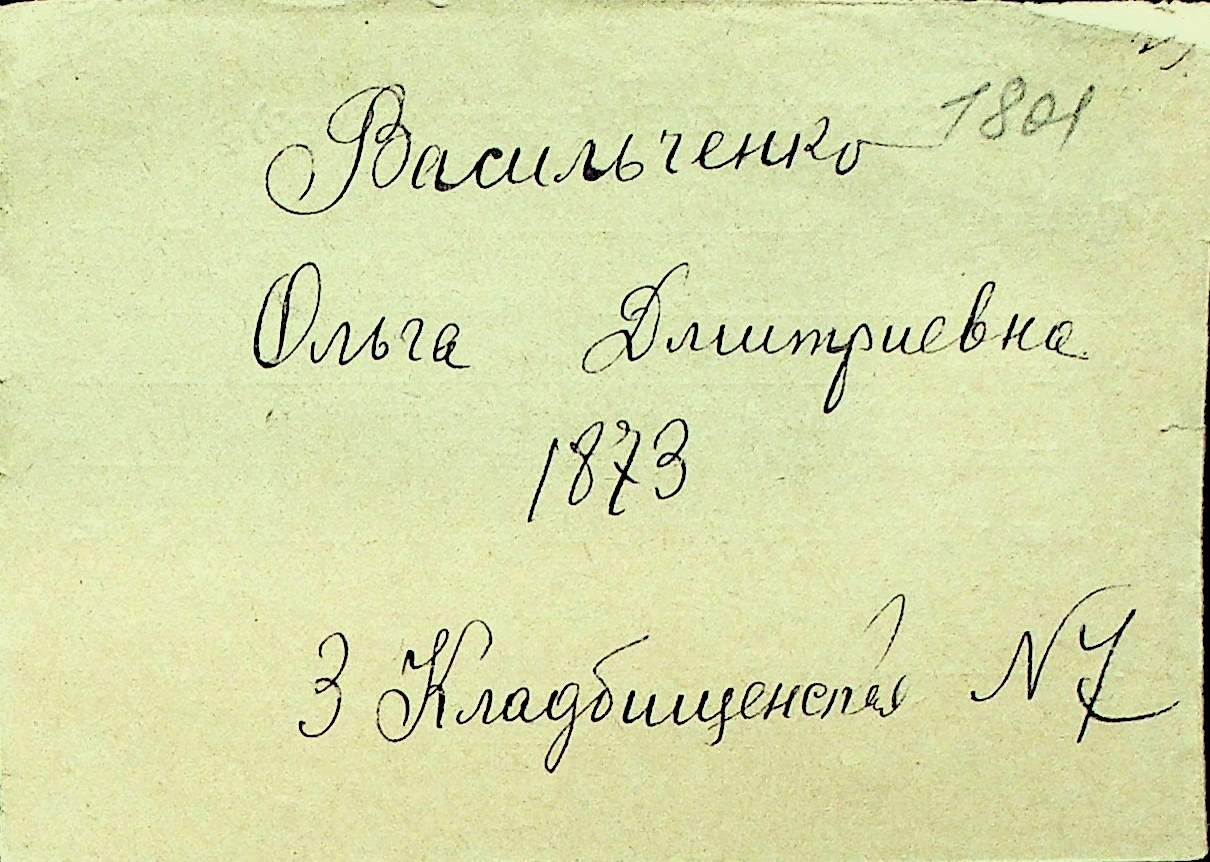 Васильченко 1801
Ольга Дмитриевна
1873
3 Кладбищенская N7